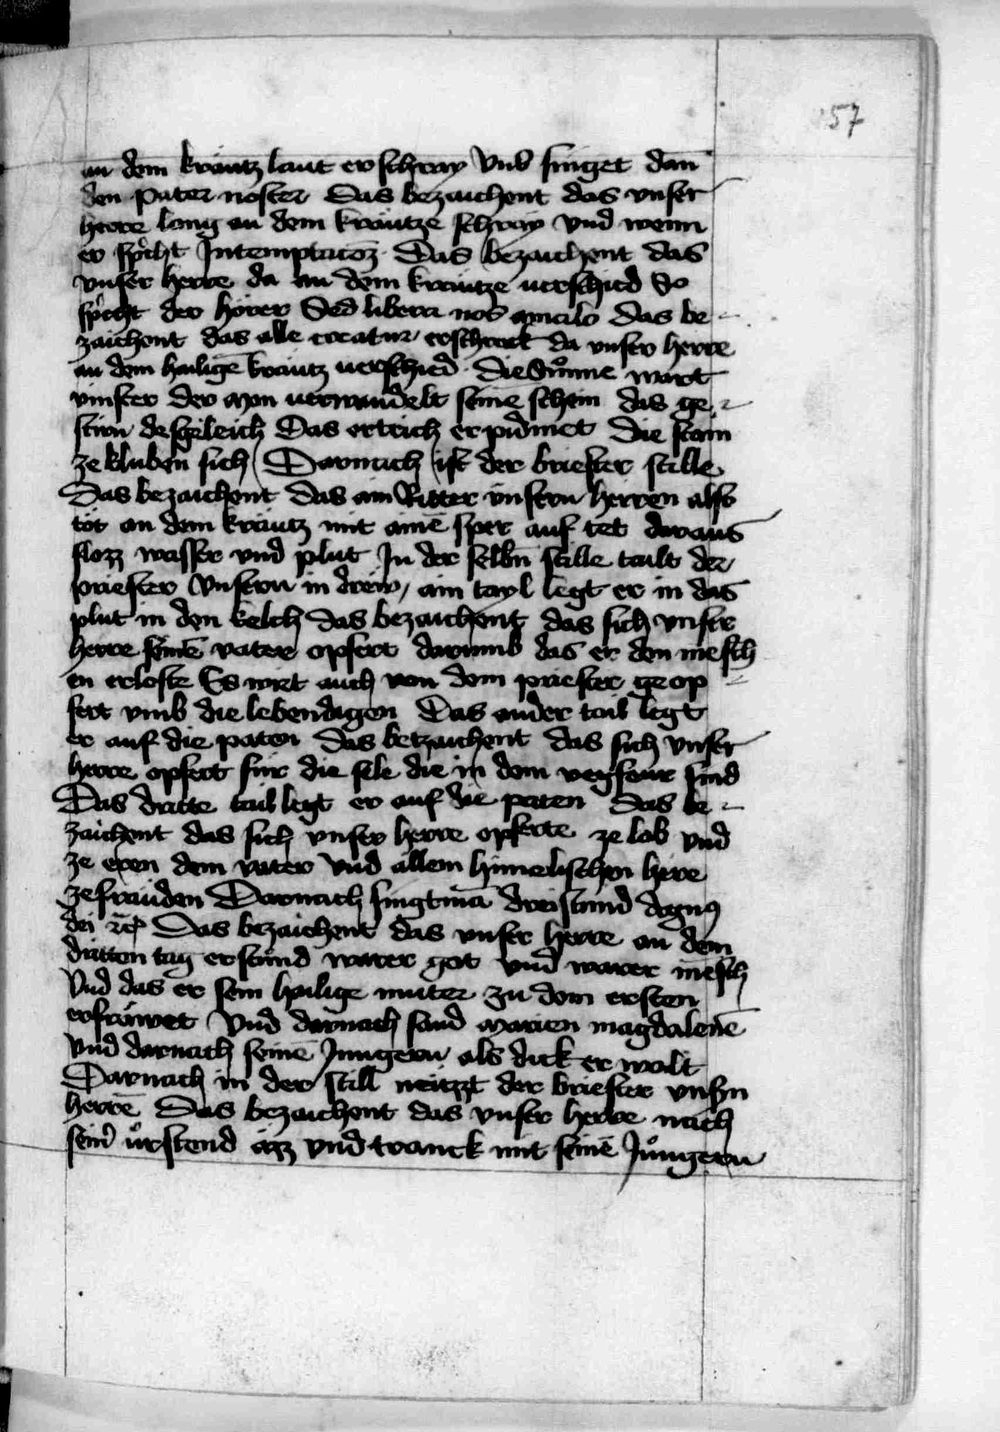 57
an dem kräutz laut erschray Vnd singet dan̄
den pater noster Das bezaichent das vnser
herre lang an dem kräutze schray vnd wenn
er spͥcht Intemptacoꝫ Das bezaichent das
vnser herre da an dem kräutze verschied So
spͥcht der hörer Sed libera nos amalo das be
zaichent das alle creatur erschrack da vnser herre
an dem hailigē kräutz verschied Die Sunne wart
vinster Der Mon verwandelt seine schein das ge
stirn desgeleich Das ertrich erpidmet Die stain
zekluben sich Darnach ist der briester stille
Das bezaichent das ain Ritter vnsern herren also
tot an dem kräutz mit ainē sper auf tet daraus
flozz wasser vnd plut In der selbn̄ stille tailt der
priester Vnsern in drew ain tayl legt er in das
plut in den kelch das bezaichent das sich vnser
herre seinē vater opfert darumb das er den mēsch
en erloste Es wirt auch von dem priester geop
fert vmb die lebendigen Das ander tail legt
er auf die paten das betzaichent das sich vnser
herre opfert für die sele die in dem vegfeur sind
Das dritte tail legt er auf die paten das be
zaichent das sich vnser herre opferte ze lob vnd
ze eren dem vater Vnd allem himelischen here
zefräuden Darnach singtmā dreistund Agnꝰ
dei ꝛc̄ Das bezaichent das vnser herre an dem
dritten tag erstund warer got vnd warer mēsch
Vnd das er sein heilige muter zu dem ersten
erfräwet Vnd darnach sand Marien magdalenē
Vnd darnach seinē Jungern als dick er wolt
Darnach in der still neützzt der briester vnsn̄
herrē Das bezaichent das vnser herre nach
seinͬ urstend azz vnd tranck mit seinē Jungern